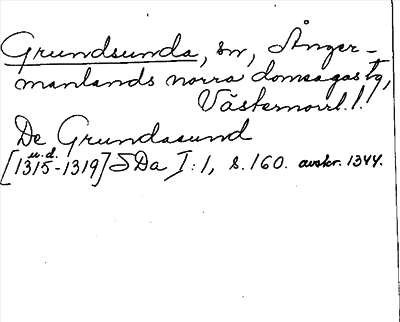 Grundsunda, sn, Ånger-
manlands norra domsagas tg,
Västernorrl. l.
De Grundasund
u.d.
[1315-1319] SDa I:1, s. 160. avskr. 1344.